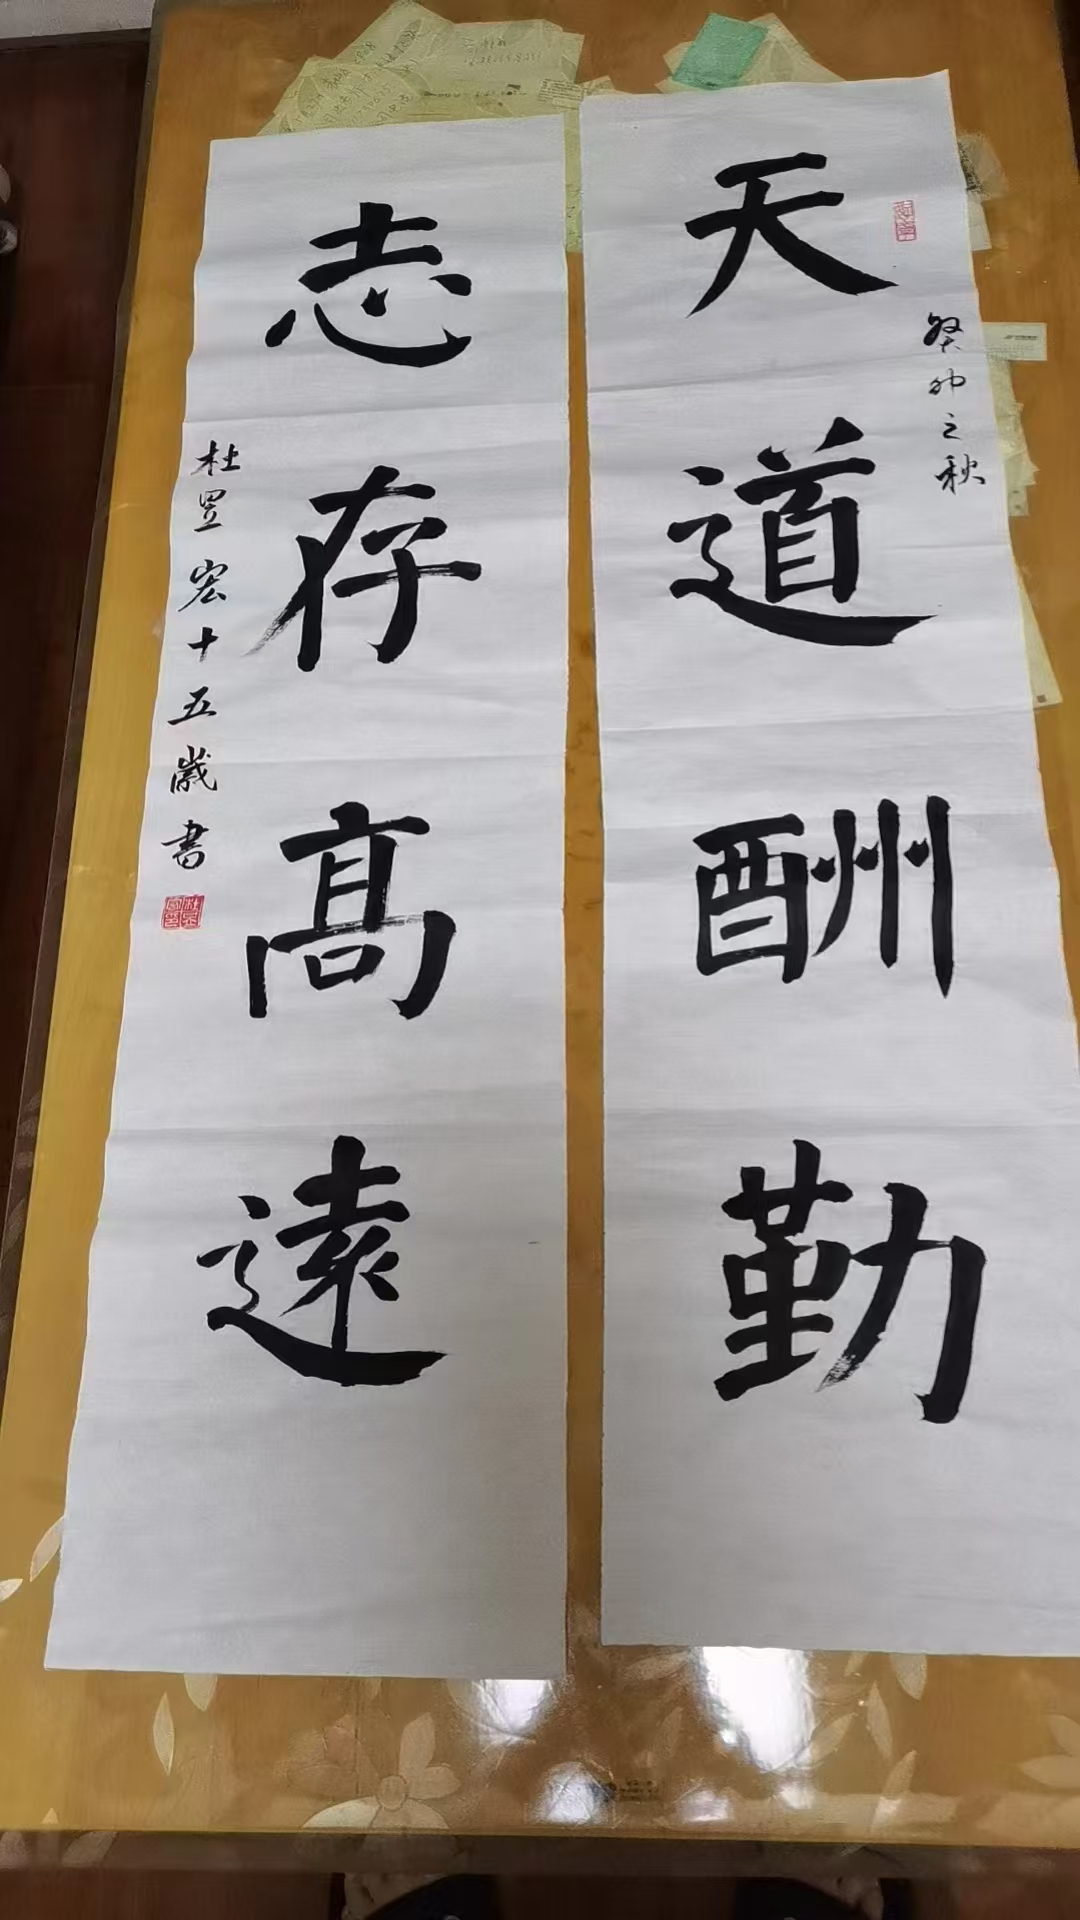 天道酬勤
癸卯之秋
志存高遠
杜昱宏十五歲書